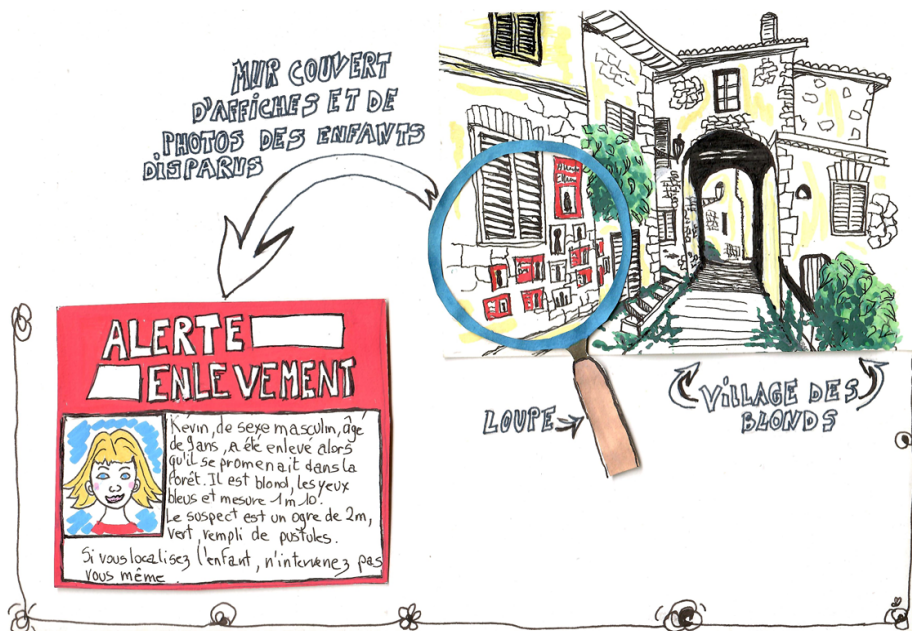 MUR COUVERT
D'AFFICHES ET DE
PHOTOS DES ENFANTS
DISPARUS
ALERTE
ENLEVEMENT
Kévin, de sexe masculin, âgé
de 9ans, a été enlevé alors
qu'il se promenait dans la
forêt. Il est blond, les yeux
bleus et mesure 1m10.
Le suspect est un ogre de 2m,
vert, rempli de pustules.
Si vous localisez l'enfant, n'intervenez pas
vous même
LOUPE
VILLAGE DES
BLONDS